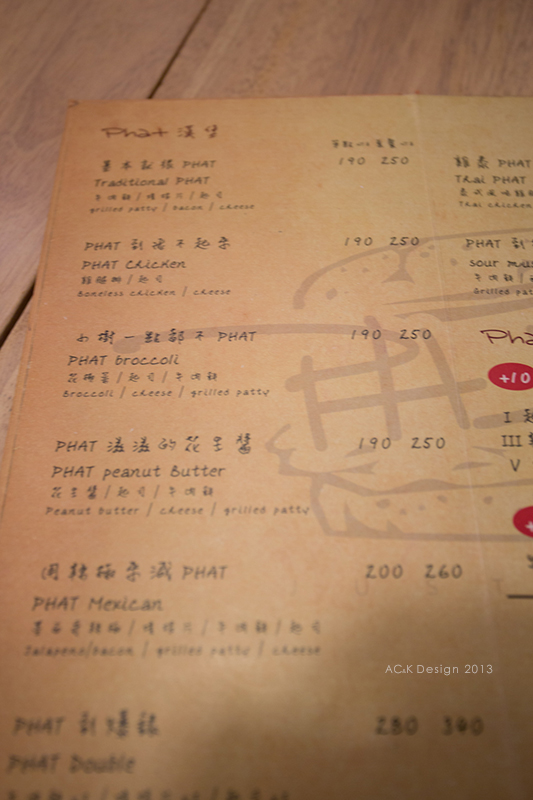 Phat 漢堡
單點 VS 套餐 VS
基本款樣 PHAT 190 250
Traditional PHAT
牛肉餅 / 培根片 / 起司
grilled patty / bacon / cheese
PHAT 到 不起來 190 250
PHAT Chicken
雞腿排 / 起司
Boneless chicken / cheese
小樹一點都不 PHAT 190 250
PHAT broccoli
花椰菜 / 起司 / 牛肉餅
Broccoli / cheese / grilled patty
PHAT 溢溢的花生醬 190 250
PHAT peanut Butter
花生醬 / 起司 / 牛肉餅
Peanut butter / cheese / grilled patty
用辣椒來減 PHAT 200 260
PHAT Mexican
墨西哥辣椒 / 培根片 / 牛肉餅 / 起司
Jalapeno/bacon / grilled patty / cheese
PHAT 到爆錶 280 340
PHAT Double
PHAT
Thai PHAT
Thai chicken
PHAT 到
sour mus
牛肉餅 /
Grilled pat
Pha
+10
I
III
V
JUST
AC&K Design 2013